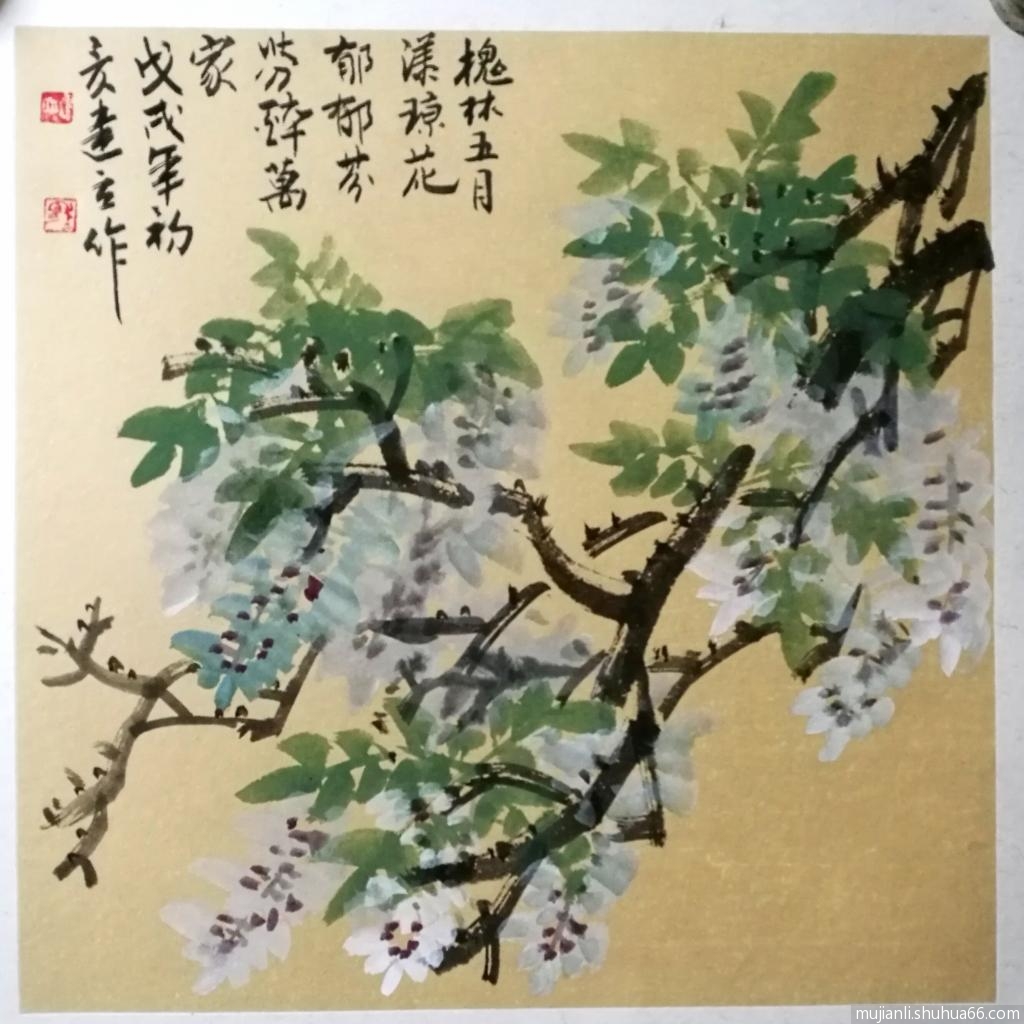 槐林五月
漾琼花
郁郁芬
芬醉萬
家
戊戌年初
亥建立作
mujianli.shuhua66.com